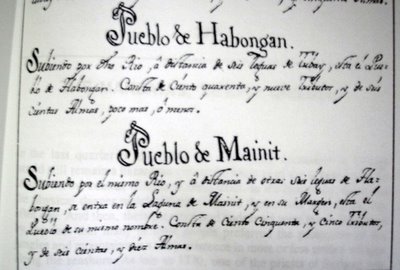 Pueblo de Habongan.
Subiendo por dho Rio, â distancia de seis leguas de Tubay, està el Pue-
blo de Habongan. Consta de Ciento quarenta, y nueve Tributos, y de seis
cientas Almas, poco mas, ò menos.
Pueblo de Mainit.
Subiendo por el mismo Rio, y â distancia de otras seis leguas de Ha-
bongan, se entra en la Laguna de Mainit, y en su Margen, està el
Pueblo de su mismo nombre. Consta de Ciento Cinquenta, y Cinco Tributos,
y de seis cientas, y diez Almas.